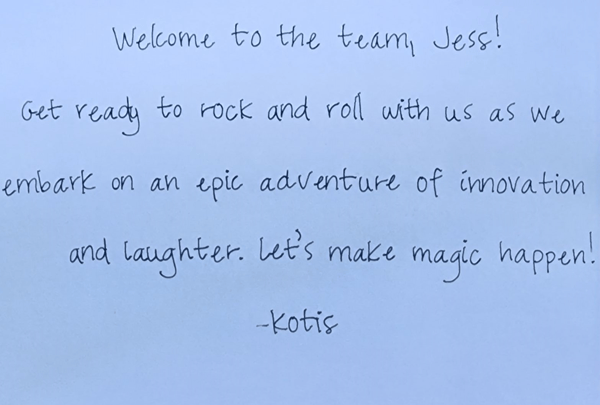 Welcome to the team, Jess!
Get ready to rock and roll with us as we
embark on an epic adventure of innovation
and laughter. Let's make magic happen!
-Kotis